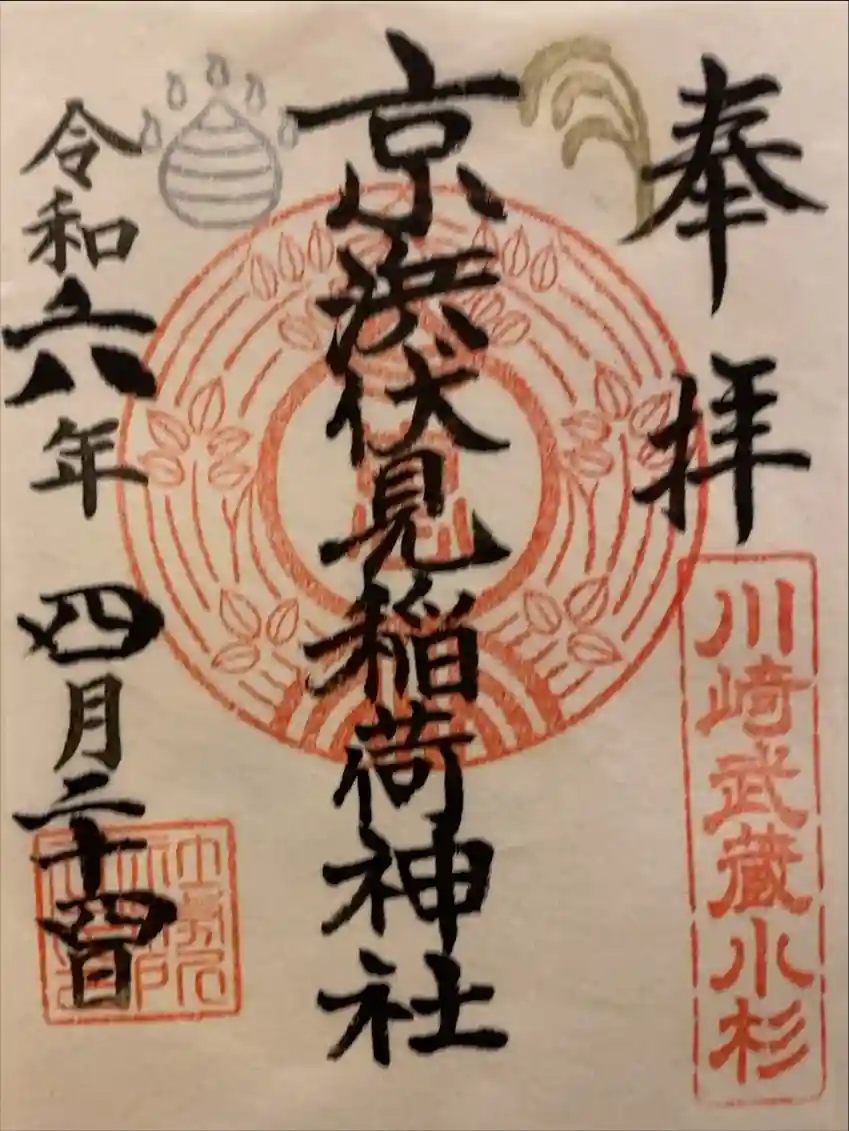 奉拝
川崎武蔵小杉
京浜伏見稲荷神社
令和六年 四月二十四日